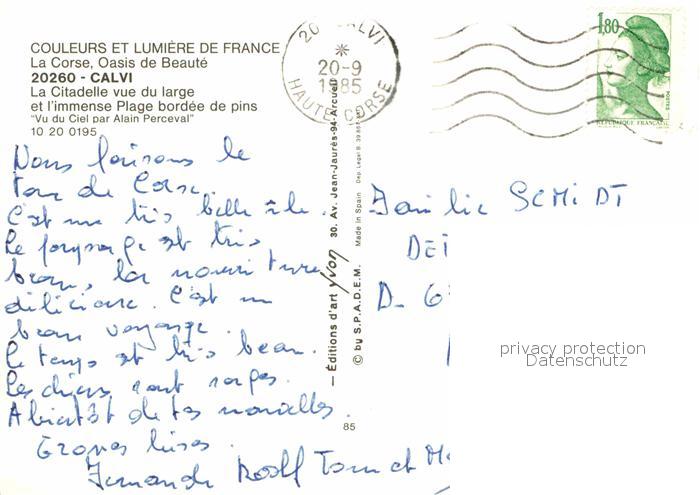 COULEURS ET LUMIÈRE DE FRANCE
La Corse, Oasis de Beauté
20260 - CALVI
La Citadelle vue du large
et l'immense Plage bordée de pins
"Vu du Ciel par Alain Perceval"
10 20 0195
20 CALVI
20-9
1985
HAUTE CORSE
1,80
POSTES
REPUBLIQUE FRANÇAISE
Nous faisons le
tour de Corse.
C'est une très belle île.
Le paysage est très
beau, la nourriture
délicieuse. C'est un
beau voyage.
Le temps est très beau.
Les chiens sont sages.
A bientôt de tes nouvelles.
Grosses bises.
Fernande Rolf Tom et
— Éditions d'art yvon 30. Av. Jean-Jaurès-94-Arcueil
© by S.P.A.D.E.M. Made in Spain Dep. Legal B.
85
Familie SCMIDT
D_ 6
privacy protection
Datenschutz